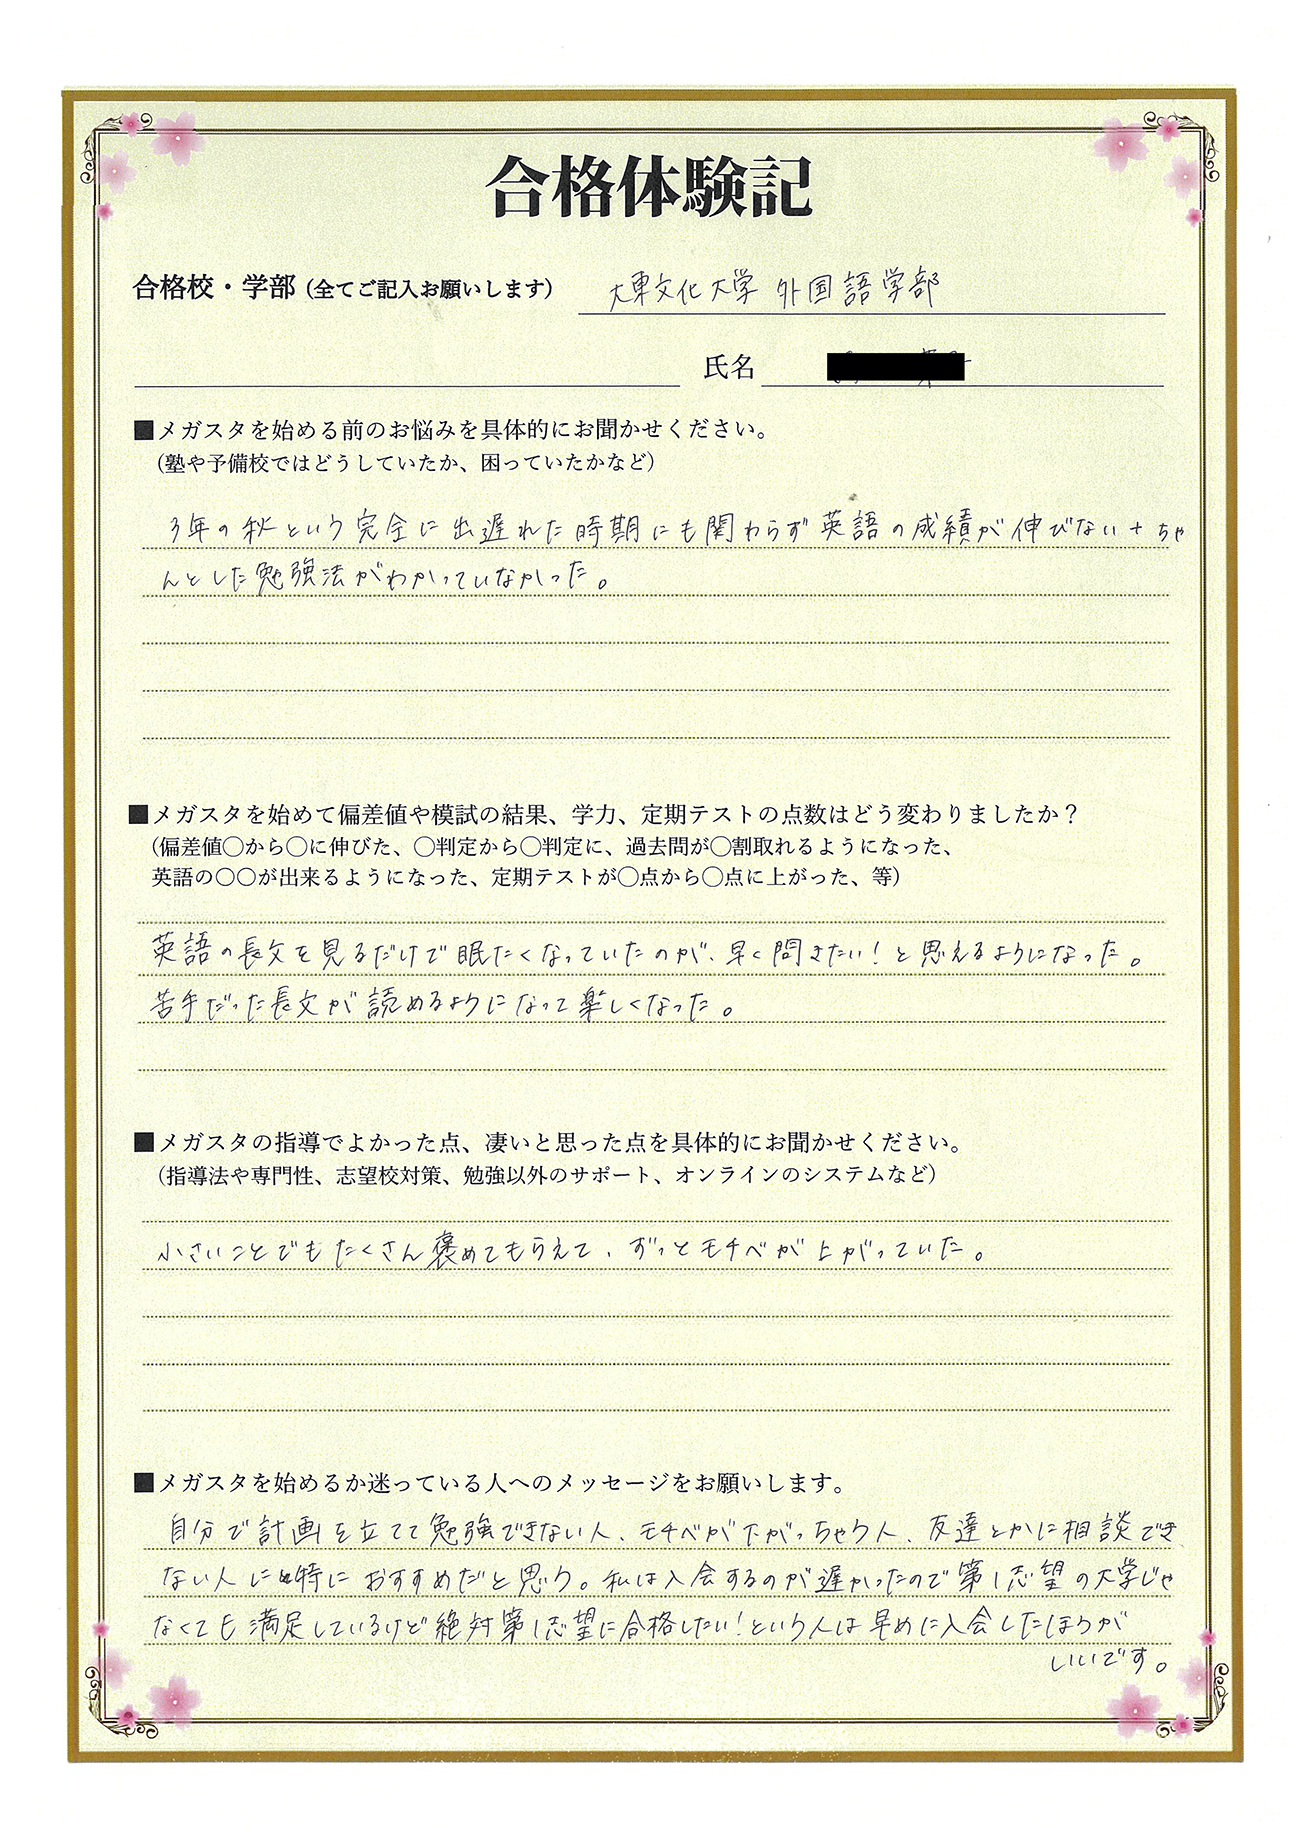 合格体験記
合格校・学部（全てご記入お願いします） 大東文化大学 外国語学部
氏名
■メガスタを始める前のお悩みを具体的にお聞かせください。
（塾や予備校ではどうしていたか、困っていたかなど）
3年の秋という完全に出遅れた時期にも関わらず英語の成績が伸びない＋ちゃ
んとした勉強法がわかっていなかった。
■メガスタを始めて偏差値や模試の結果、学力、定期テストの点数はどう変わりましたか？
（偏差値〇から〇に伸びた、〇判定から〇判定に、過去問が〇割取れるようになった、
英語の〇〇が出来るようになった、定期テストが〇点から〇点に上がった、等）
英語の長文を見るだけで眠たくなっていたのが、早く問きたい！と思えるようになった。
苦手だった長文が読めるようになって楽しくなった。
■メガスタの指導でよかった点、凄いと思った点を具体的にお聞かせください。
（指導法や専門性、志望校対策、勉強以外のサポート、オンラインのシステムなど）
小さいことでもたくさん褒めてもらえて、ずっとモチベが上がっていた。
■メガスタを始めるか迷っている人へのメッセージをお願いします。
自分で計画を立てて勉強できない人、モチベが下がっちゃう人、友達とかに相談でき
ない人に特におすすめだと思う。私は入会するのが遅かったので第1志望の大学じゃ
なくても満足しているけど絶対第1志望に合格したい！という人は早めに入会したほうが
いいです。